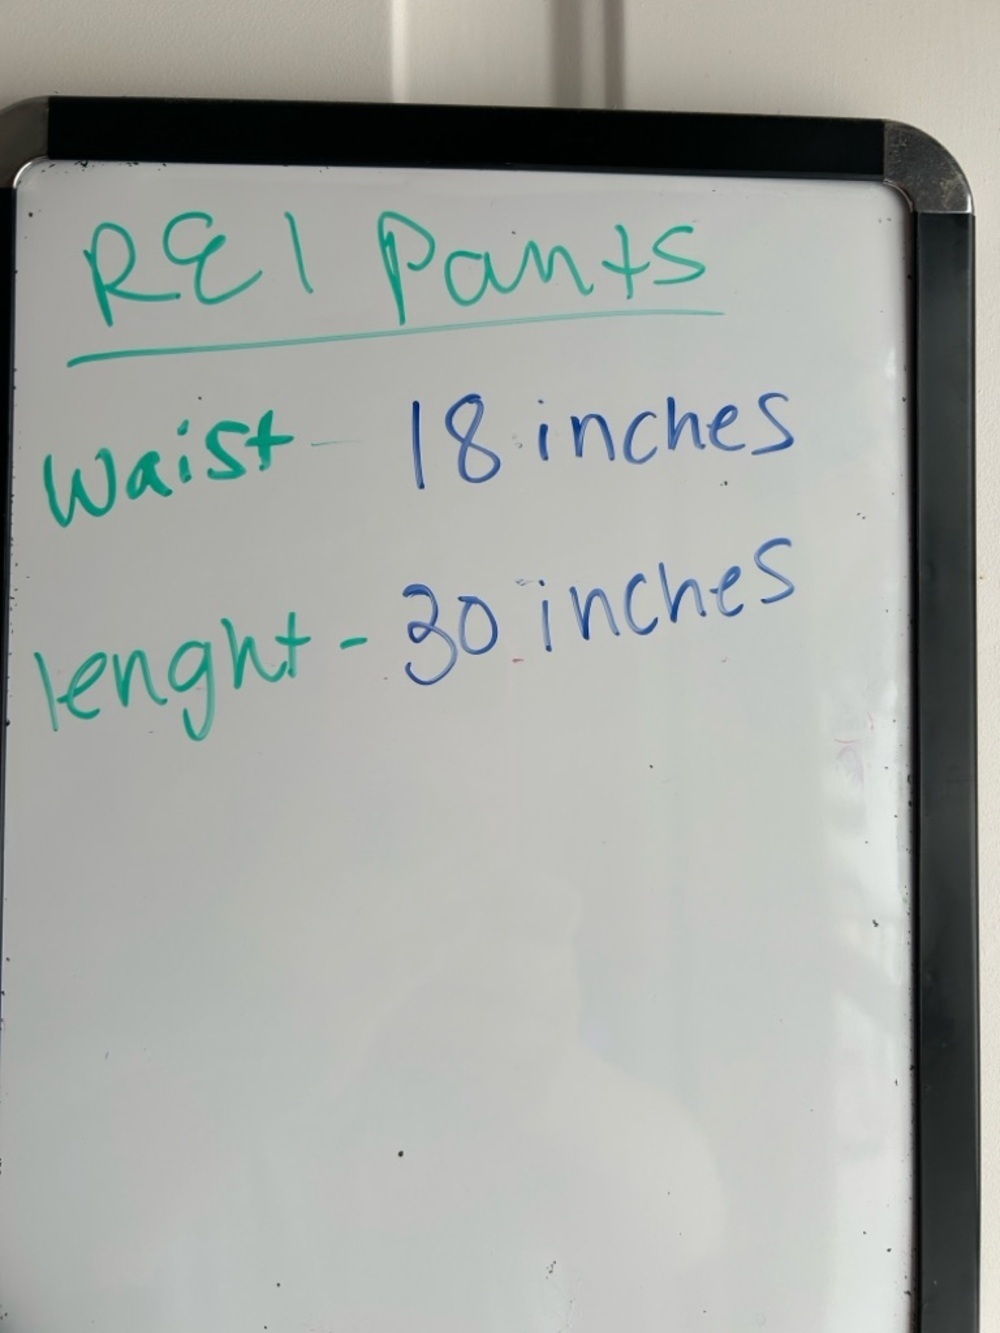 REI Pants
Waist - 18 inches
lenght - 30 inches